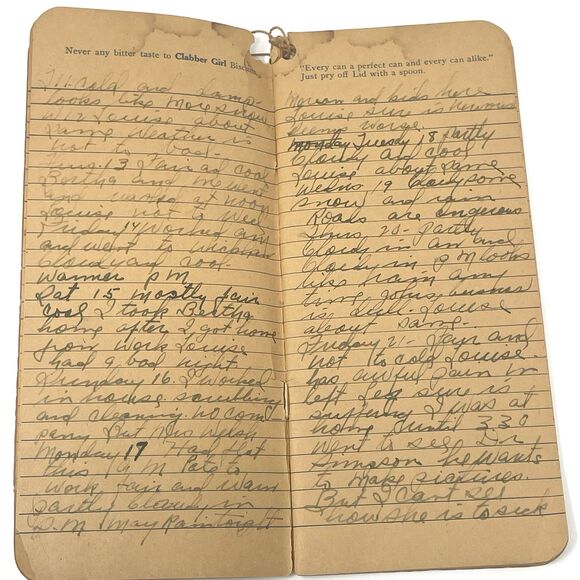 Never any bitter taste to Clabber Girl Biscuits
T 11. cold and damp-
looks like more snow
W 12 Louise about
same weather is
not to bad-
Thurs. 13 Fair and cool
Bertha and me went
and at noon
Louise not to well
Friday 14 Worked am
and went to
cloudy and cool-
warmer P M
Sat 15 Mostly fair
cool I took Bertha
home after I got home
from work Louise
had a bad night
Sunday 16. I worked
in house scrubbing
and cleaning. no com
pany But Mrs Welsh
Monday 17 Had flat
this A M late to
work fair and warm
partly cloudy in
P. M May Rain tonight
"Every can a perfect can and every can alike."
Just pry off Lid with a spoon.
and kids here
Louise sure is nervous
seems worse
Monday Tuesday 18 partly
cloudy and cool
Louise about same
Weds 19 cloudy some
snow and rain
Roads are dangerous
Thurs 20- partly
cloudy in am and
cloudy in P M looks
like rain any
time. business
is dull- Louise
about same-
Friday 21- Fair and
not to cold Louise-
has awful pain in
left Leg sure is
suffering I was at
home until 3 30
went to see Dr
Simpson he wants
to make pictures.
But I Cant see
how she is to sick